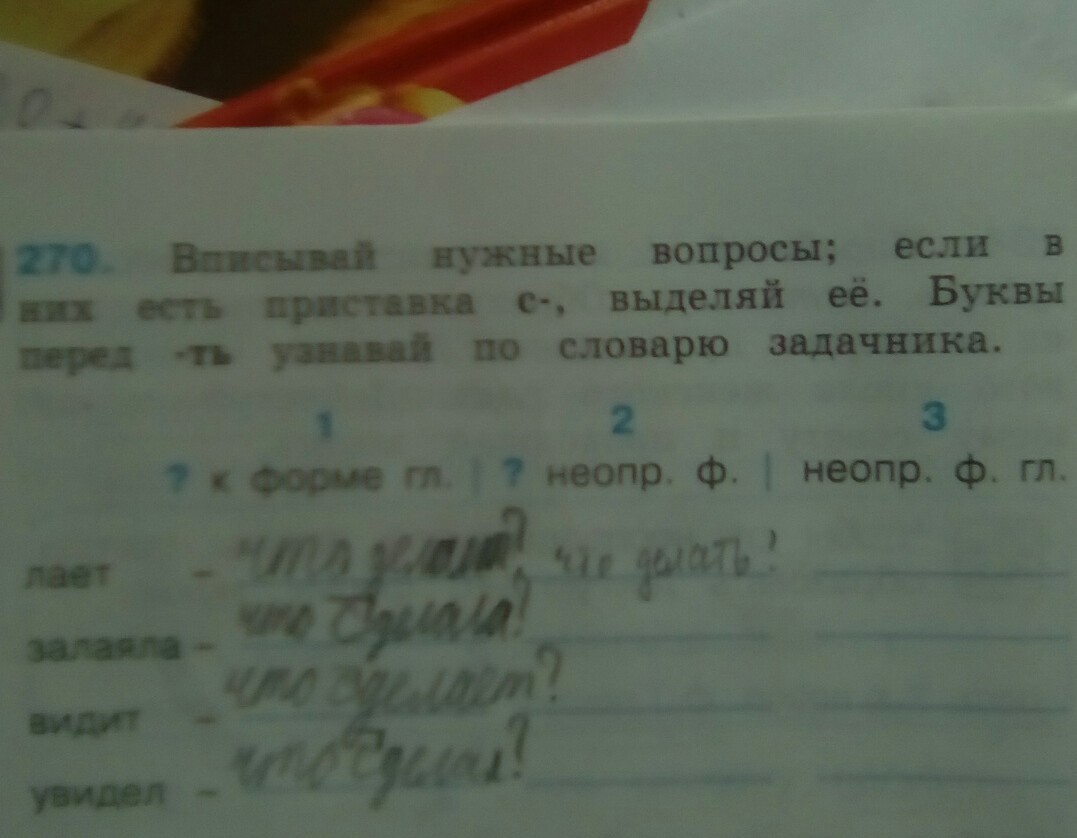 270. Вписывай нужные вопросы; если в
них есть приставка с-, выделяй её. Буквы
перед -ть узнавай по словарю задачника.
1 2 3
? к форме гл. | ? неопр. ф. | неопр. ф. гл.
лает – что делает? что делать?
залаяла – что сделала?
видит – что сделает?
увидел – что сделал?